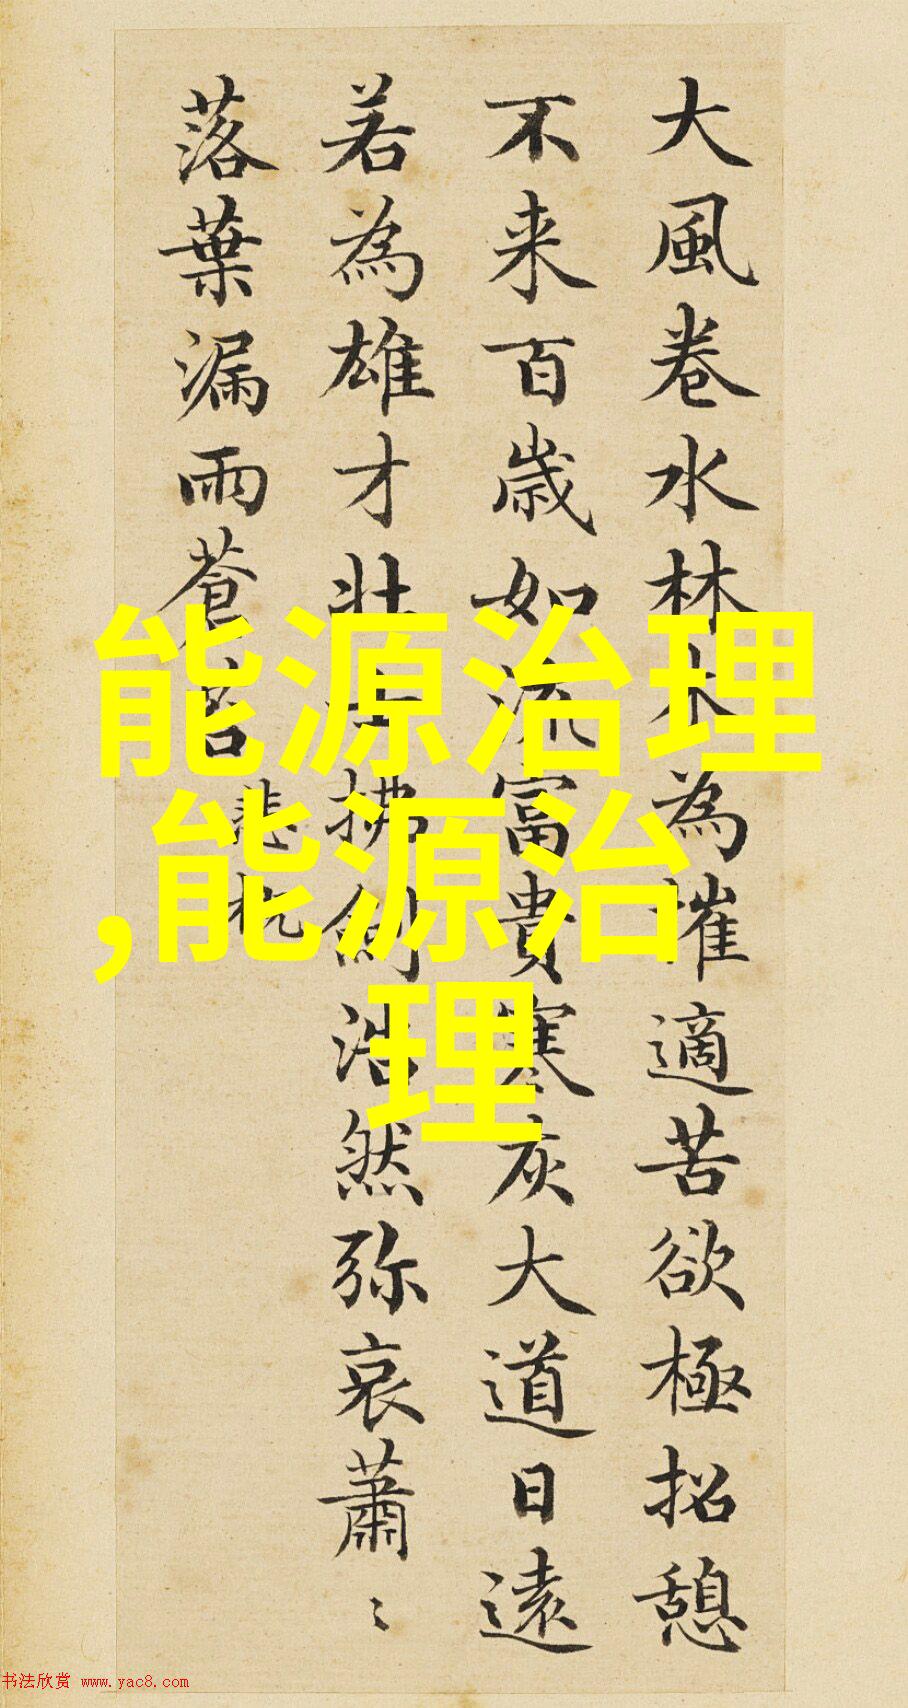 大風卷水林木為摧適苦欲極招憩
不来百歳如流富貴寒灰大道日遠
若為雄才壮士拂劍浩然弥哀蕭ミ
落葉漏雨蒼苔
悲
能源治理
,能源治
理
书法欣赏 www.yac8.com